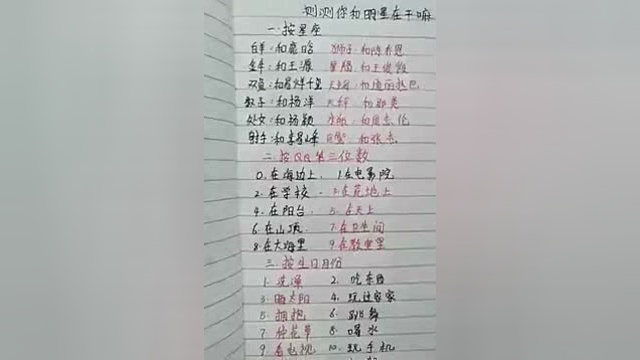 测测你和明星在干嘛
一、按星座
白羊:和鹿晗 狮子:和陈乔恩
金牛:和王源 巨蟹:和王俊凯
双鱼:和易烊千玺 天蝎:和迪丽热巴
双子:和杨洋 天秤:和那英
处女:和杨颖 水瓶:和周杰伦
射手:和李易峰 和张杰
二、按QQ第三位数
0.在海边上 1.在电影院
2.在学校 3.在花地上
4.在阳台 5.在天上
6.在山顶 7.在卫生间
8.在大海里 9.在教室里
三、按生日月份
1.洗澡 2.吃东西
3.晒太阳 4.玩过家家
5.拥抱 6.跳舞
7.种花草 8.喝水
9.看电视 10.玩手机